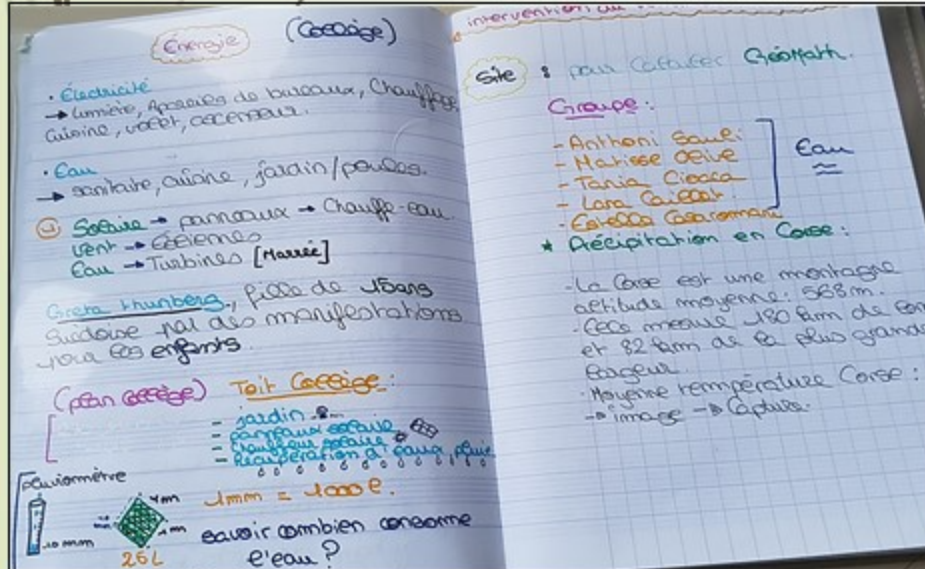 Énergie (Collège)
• Électricité
→ lumière, Appareils de bureaux, Chauffage
Cuisine, volet, ascenseur.
• Eau
→ sanitaire, cuisine, jardin/poules.
Solaire → panneaux → Chauffe-eau.
Vent → Éoliennes
Eau → Turbines [Marrée]
Greta thunberg, fille de 15ans
Suédoise des manifestations
pour les enfants.
(plan collège) Toit Collège :
- jardin
- panneaux solaire
- chauffeur solaire
- Récupération d'eaux pluie
pluviomètre
1mm = 1000l.
1m
1m
10 mm
26L
savoir combien consome
l'eau ?
intervention du
Site : pour Calculer GéoMath.
Groupe :
- Anthoni Sauli
- Matisse
- Tania
- Lara
- Estella Casaromani
Eau
* Précipitation en Corse :
- La Corse est une montagne
altitude moyenne : 568m.
- Cela mesure 180 km de
et 82 km de la plus grande
largeur.
- Moyenne température Corse :
→ image → Capture.